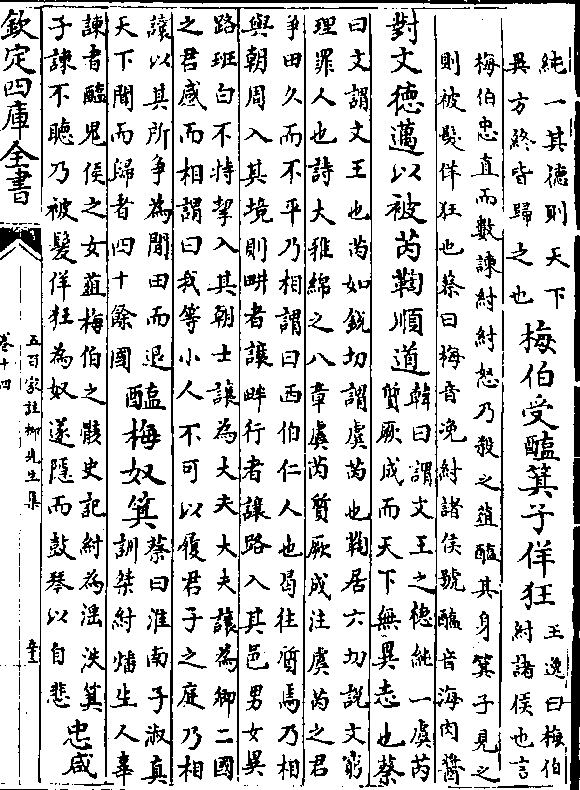 純一其德則天下
異方終皆歸之也
梅伯受醢箕子佯狂
王逸曰梅伯
紂諸侯也言
梅伯忠直而數諫紂紂怒乃殺之葅醢其身箕子見之
則被髮佯狂也蔡曰梅音浼紂諸侯號醢音海肉醬
對文德邁以被芮鞫順道
韓曰謂文王之德純一虞芮
質厥成而天下無異志也蔡
曰文謂文王也芮如鋭切謂虞芮也鞫居六切説文窮
理罪人也詩大雅綿之八章虞芮質厥成注虞芮之君
爭田久而不平乃相謂曰西伯仁人也曷往質焉乃相
與朝周入其境則畊者讓畔行者讓路入其邑男女異
路班白不持挈入其朝士讓為大夫大夫讓為卿二國
之君感而相謂曰我等小人不可以履君子之庭乃相
讓以其所爭為閒田而退
天下聞而歸者四十餘國
醢梅奴箕
蔡曰淮南子淑真
訓桀紂燔生人辜
諫者醢鬼侯之女葅梅伯之骸史記紂為滛泆箕
子諫不聽乃被髮佯狂為奴遂隱而鼓琴以自悲
忠咸
欽定四庫全書
五百家註柳先生集
卷十四